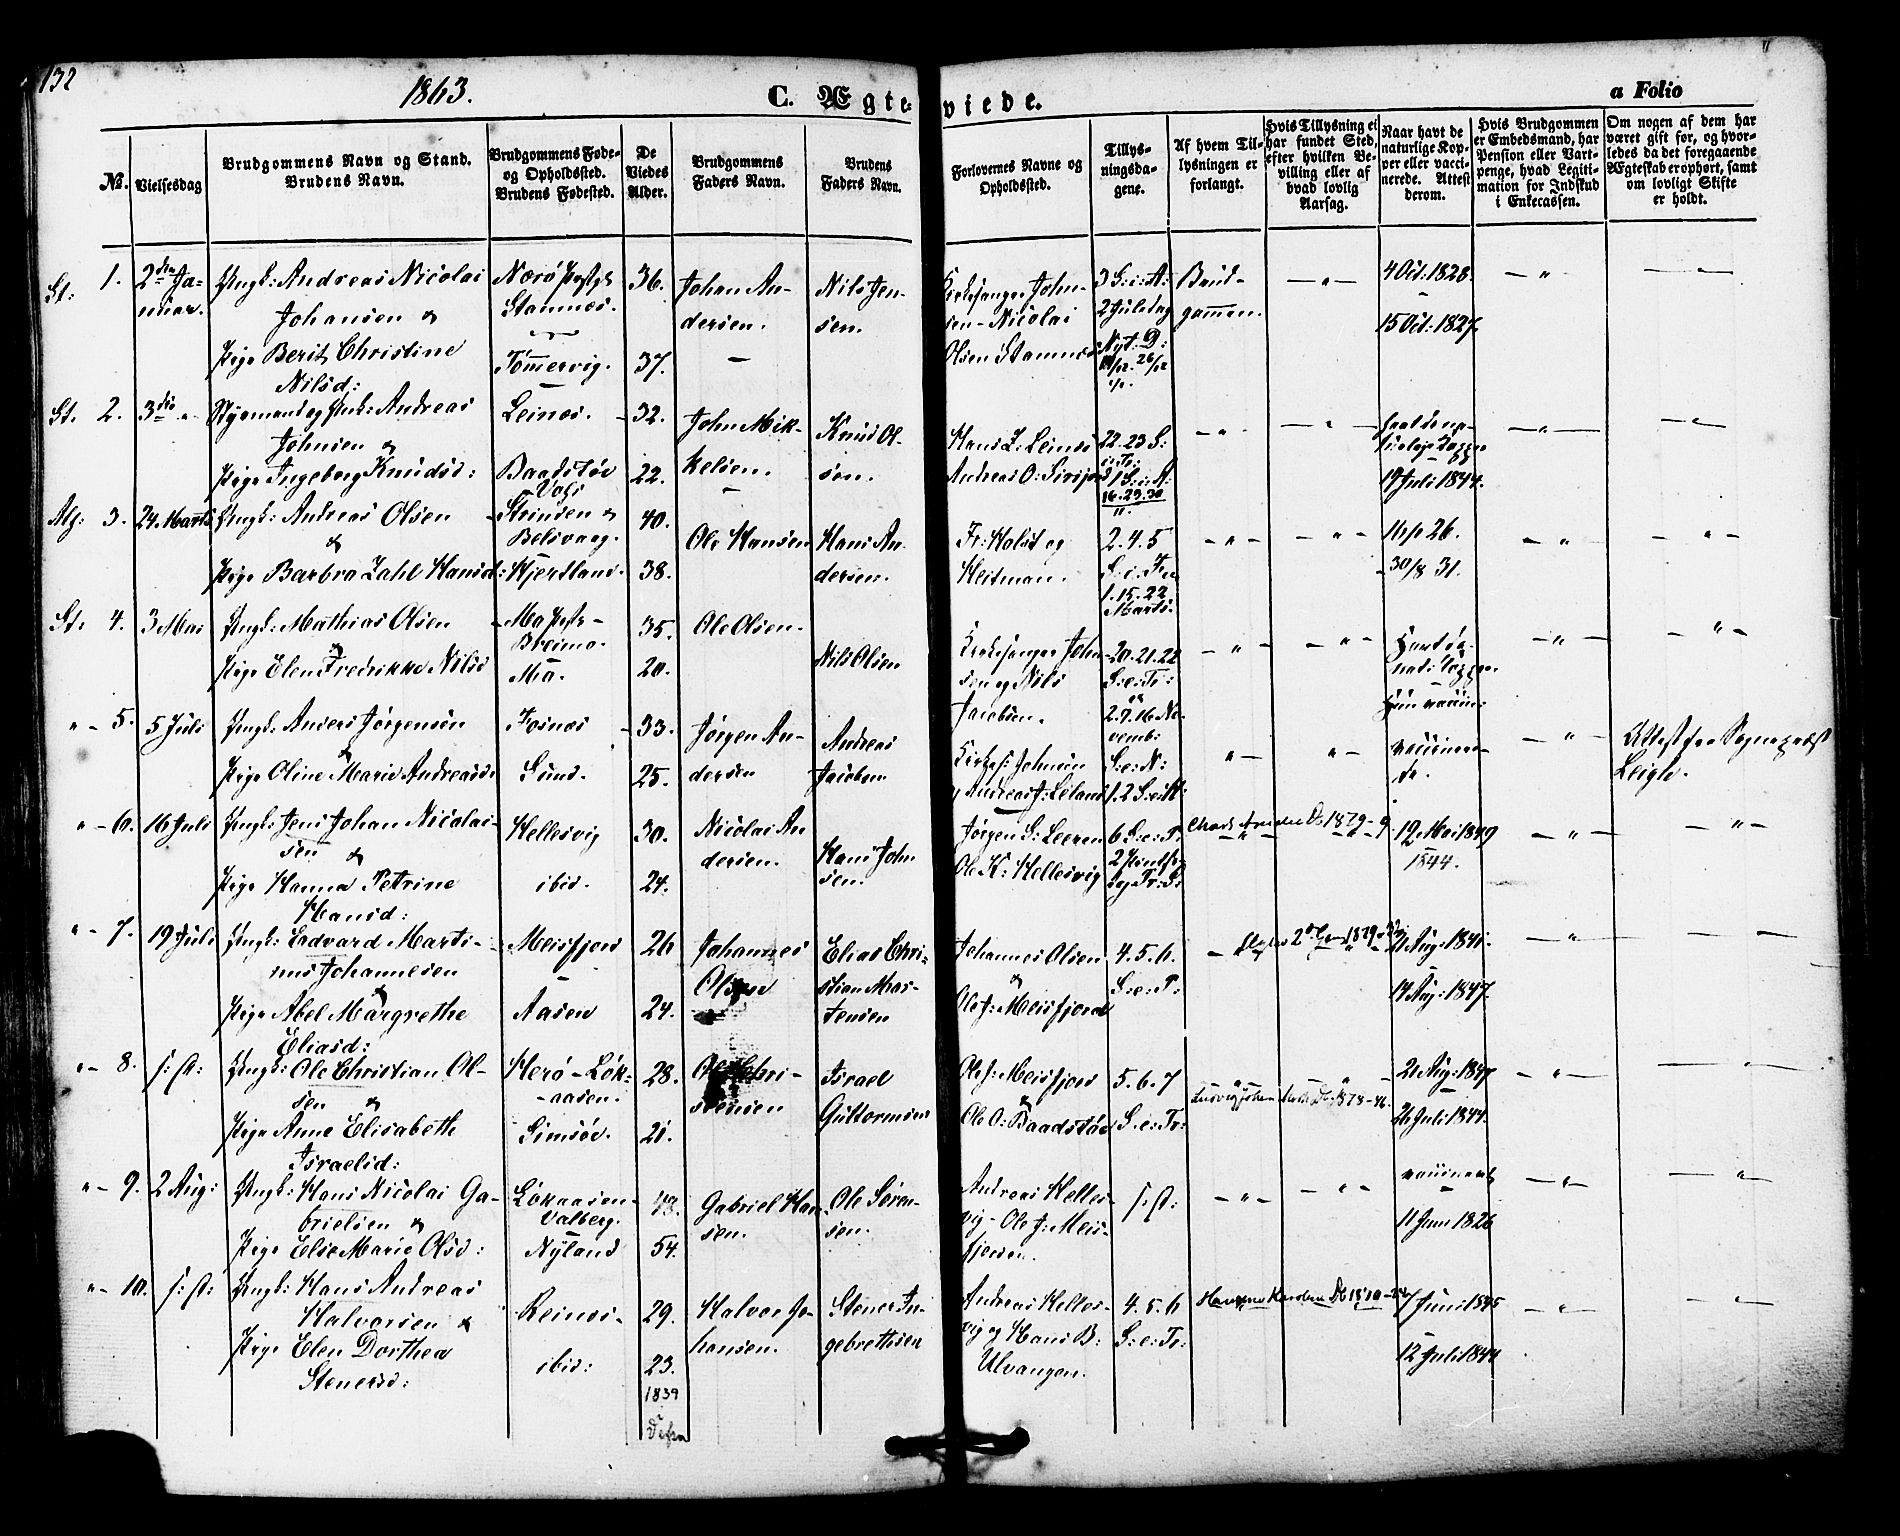 132
1863.
C. Ægteviede.
a Folio
№.
Vielsesdag
Brudgommens Navn og Stand.
Brudens Navn.
Brudgommens Føde-
og Opholdssted.
Brudens Fødested.
De
Viedes
Alder.
Brudgommens
Faders Navn.
Brudens
Faders Navn.
Forlovernes Navne og
Opholdssted.
Tillys-
ningsda-
gene.
Af hvem Til-
lysningen er
forlangt.
Hvis Tillysning ei
har fundet Sted,
efter hvilken Be-
villing eller af
hvad lovlig
Aarsag.
Naar havt de
naturlige Kop-
per eller vacci-
nerede. Attest
derom.
Hvis Brudgommen
er Embedsmand, har
Pension eller Vart-
penge, hvad Legiti-
mation for Indskud
i Enkecassen.
Om nogen af dem har
været gift før, og hvor-
ledes da det foregaaende
Ægteskab er ophørt, samt
om lovligt Skifte
er holdt.
St: 1. 2den Ja-
nuar.
Ungk: Andreas Nicolai
Johansen &
Pige Berit Christine
Nilsd:
Nærø Præstgd
Stamnes.
Tømmervig.
36.
37.
Johan An-
dersen.
Nils Jen-
sen.
Kirkesanger John-
sen - Nicolai
Olsen Stamnes
3 S: i: A:
2 Juledag
Nyt: D:
Brud-
gommen.
4 Oct: 1828.
15 Oct: 1827.
St. 2. 3die "
Styrmand og Ungk: Andreas
Johnsen &
Pige Ingeborg Knudsd:
Leines.
Baadstøe
32.
22.
John Mik-
kelsen.
Knud Ol-
sen.
Hans Z: Leines
Andreas O:
22. 23 S:
e: Tr:
1 S: i: A:
19 Juli 1844.
Alg: 3. 24. Marts
Ungk: Andreas Olsen
&
Pige Barbra Zahl Hansd:
Strinden &
Belsvaag.
Hjertland.
40.
38.
Ole Hansen
Hans An-
dersen.
Fr: Holst og
Heitman.
2. 4. 5
S. i. Fa
1. 15. 22
Marts.
26.
30/8 31.
St: 4. 3 Mai
Ungk: Mathias Olsen
&
Pige Elen Fredrikke Nilsd
Mo Præstg-
Breimo.
Mo.
35.
20.
Ole Olsen.
Nils Olsen
Kirkesanger John-
sen og Nils
Jacobsen.
20. 21. 22
S: e: Tr:
"- 5. 5 Juli
Ungk: Anders Jørgensen
&
Pige Oline Marie Andreasd:
Fosnes
Sund.
33.
25.
Jørgen An-
dersen
Andreas
Jacobsen
Kirkes: Johnsen
og Andreas J: Leland
2. 9. 16 No-
vemb:
S: e: N:
1. 2 S: e: H:
vaccinere-
de.
Attest fra Sognepræst
Leigh.
"- 6. 16 Juli
Ungk: Jens Johan Nicolai-
sen &
Pige Hanna Petrine
Hansd:
Hellesvig
ibid.
30.
24.
Nicolai An
dersen.
Hans John
sen.
Jørgen S: Leeren
Ole K: Hellesvig
6 S: e: P:
12 Mai 1849
1844.
"- 7. 19 Juli
Ungk: Edvard Marti-
nus Johannesen
&
Pige Abel Margrethe
Eliasd:
Meisfjord
Aasen
26
24.
Johannes
Olsen
Elias Chri-
stian Mor-
tensen
Johannes Olsen
&
Ole J: Meisfjord
4. 5. 6.
S: e: P:
21 Aug: 1841.
14 Aug: 1847.
"- 8. s: st:
Ungk: Ole Christian Ol-
sen &
Pige Anne Elisabeth
Israelsd:
Herø - Løk-
aasen.
Simsøe.
28.
21.
Ole Chri-
stensen
Israel
Guttormsen
Ole J: Meisfjord
&
Ole O: Baadstøe
5. 6. 7
S. e: Tr:
21 Aug: 1847
26 Juli 1844.
"- 9. 2 Aug:
Ungk: Hans Nicolai Ga-
brielsen &
Pige Else Marie Olsd:
Løkaasen-
Valberg.
Nyland
43.
54.
Gabriel Han-
sen.
Ole Søren-
sen.
Andreas Helles-
vig - Ole J: Meis-
fjorden.
s: st:
vaccineret
11 Juni 1826
"- 10. s: st:
Ungk: Hans Andreas
Halvorsen &
Pige Elen Dorthea
Stenersd:
Reines.
ibid:
29.
23.
1839
Halvor Jo-
hansen.
Stener In-
gebrethsen
Andreas Helles-
vig og Hans B:
Ulvangen.
4. 5. 6
S: e: Tr:
7 Juni 1845
12 Juli 1844